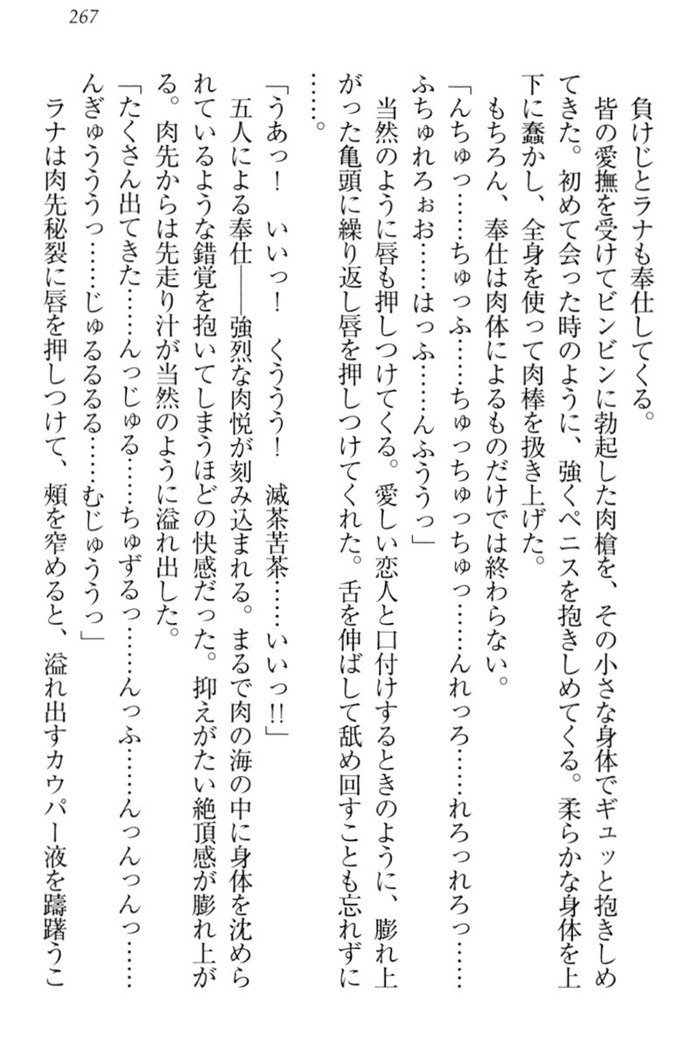 267
負けじとラナも奉仕してくる。
皆の愛撫を受けてビンビンに勃起した肉槍を、その小さな身体でギュッと抱きしめ
てきた。初めて会った時のように、強くペニスを抱きしめてくる。柔らかな身体を上
下に蠢かし、全身を使って肉棒を扱き上げた。
もちろん、奉仕は肉体によるものだけでは終わらない。
「んちゅっ……ちゅっふ……ちゅっちゅっちゅっ……んれっろ……れろっれろっ……
ふちゅれろぉお……はっふ……んふううっ」
当然のように唇も押しつけてくる。愛しい恋人と口付けするときのように、膨れ上
がった亀頭に繰り返し唇を押しつけてくれた。舌を伸ばして舐め回すことも忘れずに
……。
「うあっ！　いいっ！　くううう！　滅茶苦茶……いいっ!!」
五人による奉仕――強烈な肉悦が刻み込まれる。まるで肉の海の中に身体を沈めら
れているような錯覚を抱いてしまうほどの快感だった。抑えがたい絶頂感が膨れ上が
る。肉先からは先走り汁が当然のように溢れ出した。
「たくさん出てきた……んっじゅる……ちゅずるっ……んっふ……んっんっんっ……
んぎゅうううっ……じゅるるるる……むじゅううっ」
ラナは肉先秘裂に唇を押しつけて、頬を窄めると、溢れ出すカウパー液を躊躇うこ